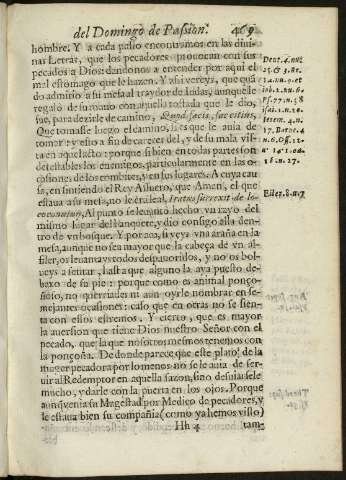 del Domingo de Passion. 469
hombre. Y a cada passo encontramos en las divi-
nas Letras, que los pecadores prouocan con sus
pecados a Dios: dandonos a entender por aqui el
mal estomago que le hazen. Y assi vereys, que quã
do admitio a su mesa al traydor de Iudas, aunque le
regalò de su mano con aquella tostada que le dio,
fue, para dezirle de camino, Quod facis, fac citius,
Que tomasse luego el camino, si es que le auia de
tomar: y esto a fin de carecer del, y de su mala vis-
ta en aquel acto: porque si bien en todas partes son
detestables los enemigos, particularmente en las o-
casiones de los combites, y en sus lugares. A cuya cau
sa, en sintiendo el Rey Assuero, que Aman, el que
estaua a su mesa, no le era leal, Iratus surrexit de lo-
co conuiuij, Al punto se leuantò hecho vn rayo del
mismo lugar del banquete, y dio consigo allà den-
tro de vn bosque. Y por acà, si veys vna araña en la
mesa, aunque no sea mayor que la cabeça de vn al-
filer, os leuantays todos despauoridos, y no os bol-
ueys a sentar, hasta que alguno la aya puesto de-
baxo de su pie: porque como es animal ponço-
ñoso, no querriades ni aun oyrle nombrar en se-
mejantes ocasiones: caso que en otras no se sien-
ta con essos estremos. Y cierto, que es mayor
la auersion que tiene Dios nuestro Señor con el
pecado, que la que nosotros mesmos tenemos con
la ponçoña. De donde parece, que este plato de la
muger pecadora por lo menos no le auia de ser-
uir al Redemptor en aquella sazon, sino desuiarsele
mucho, y darle con la puerta en los ojos. Porque
aunq̃ venia su Magestad por Medico de pecadores, y
le estaua bien su compañia (como ya hemos visto)
Hh 4 tam-
Deut. 4. nu.
25. & 31. nu.
Iob. 12. nu. 6.
Ps. 77. n. 58
Isai. 1. n. 20
Ierem. 4. n.
17. Baruc. 4
n. 6. Ose. 12-
Ester. 8. n. 7